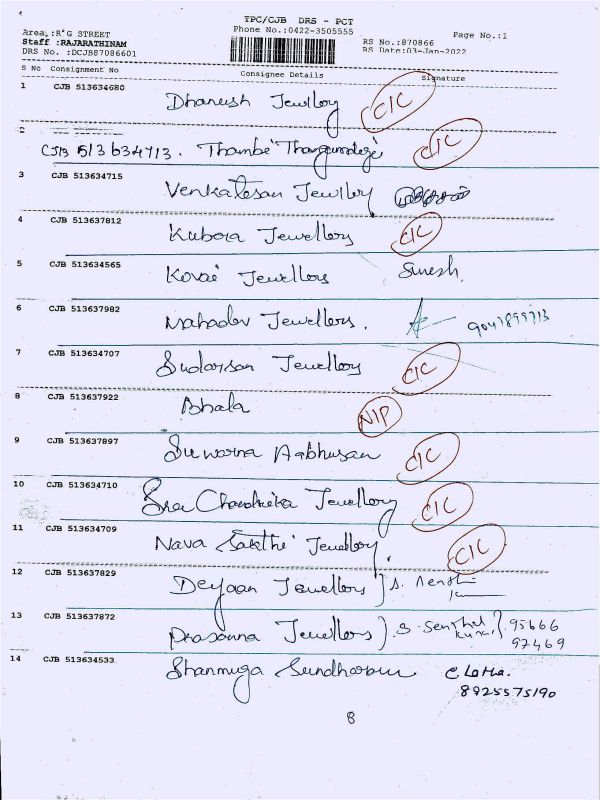 TPC/CJB DRS - PCT
Area,:R'G STREET Phone No.:0422-3505555 Page No.:1
Staff :RAJARATHINAM RS No.:870866
DRS No. :DCJB87086601 RS Date:03-Jan-2022
S No Consignment No Consignee Details Signature
1 CJB 513634680 Dhanush Jewllory CIC
2 CJB 513634713. CIC
3 CJB 513634715 Venkatesan Jewllery
4 CJB 513637812 Kubera Jewellers CIC
5 CJB 513634565 Kovai Jewellers Suresh.
6 CJB 513637982 Mahadev Jewellers.
7 CJB 513634707 Sudarsan Jewellory CIC
8 CJB 513637922 Bhala NIP
9 CJB 513637897 Suwarna Aabhusan CIC
10 CJB 513634710 Sree Chandrika Jewellory CIC
11 CJB 513634709 Nava Sakthi Jewellory. CIC
12 CJB 513637829 Jewellers } S.
13 CJB 513637872 Prasanna Jewellers }. S. Senthil } 95666
97469
14 CJB 513634533 Shanmuga C. Latha.
8925575190
8